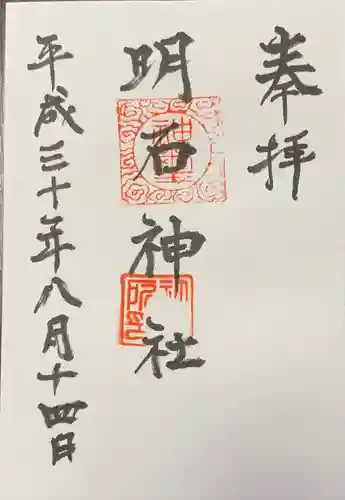 奉拝
明石神社
平成三十年八月十四日